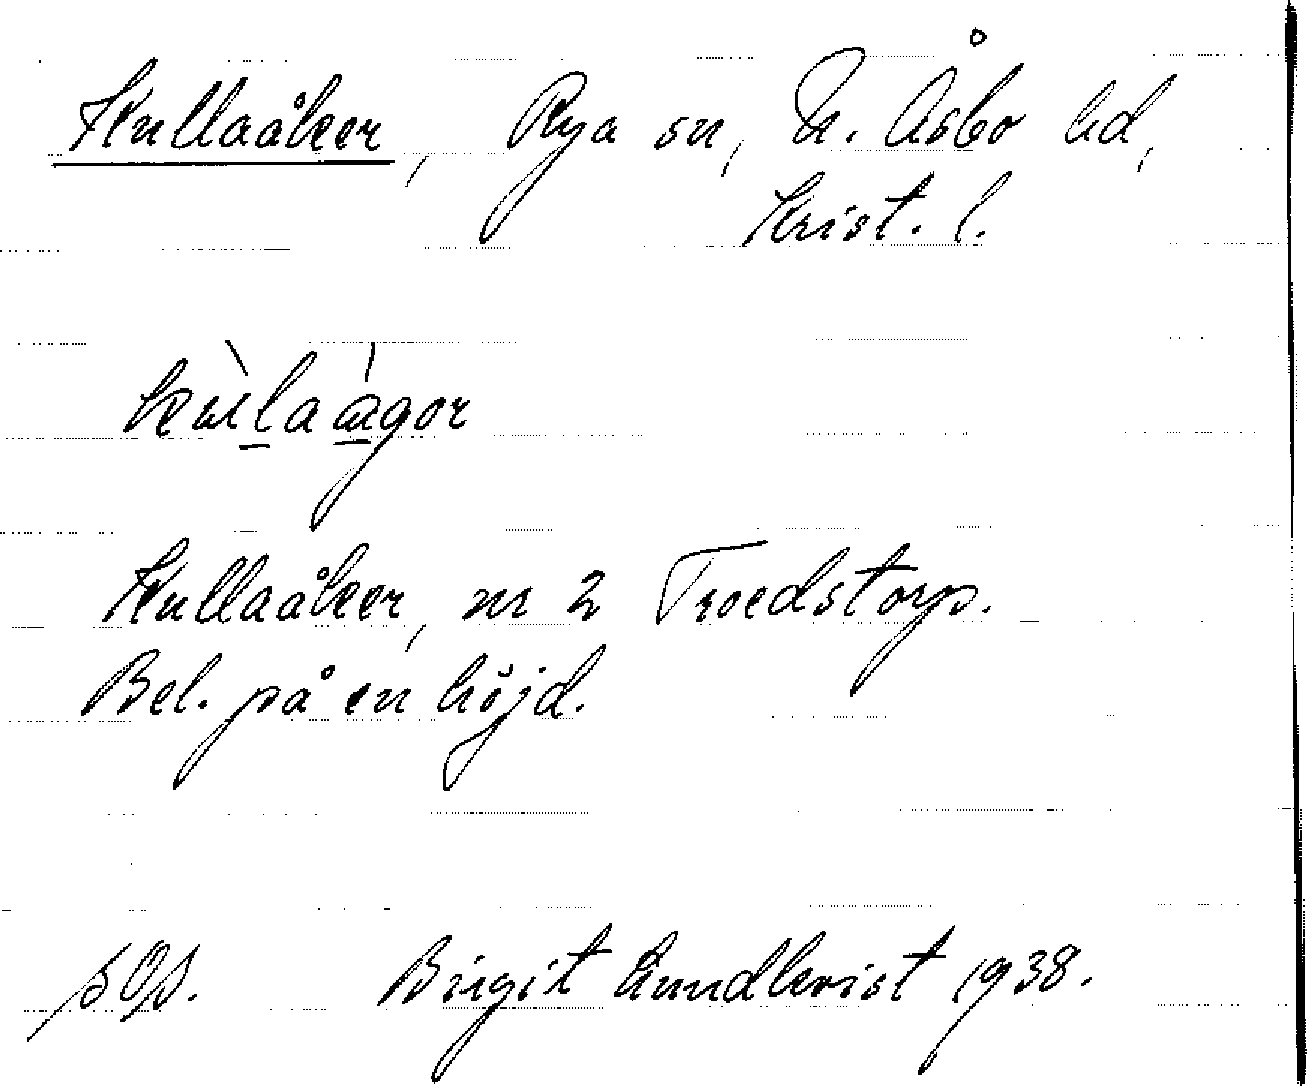 Kullaåker, Rya sn, N. Åsbo hd,
Krist. l.
kùlaàgor
Kullaåker, nr 2 Troedstorp.
Bel. på en höjd.
Birgit Lundkvist 1938.